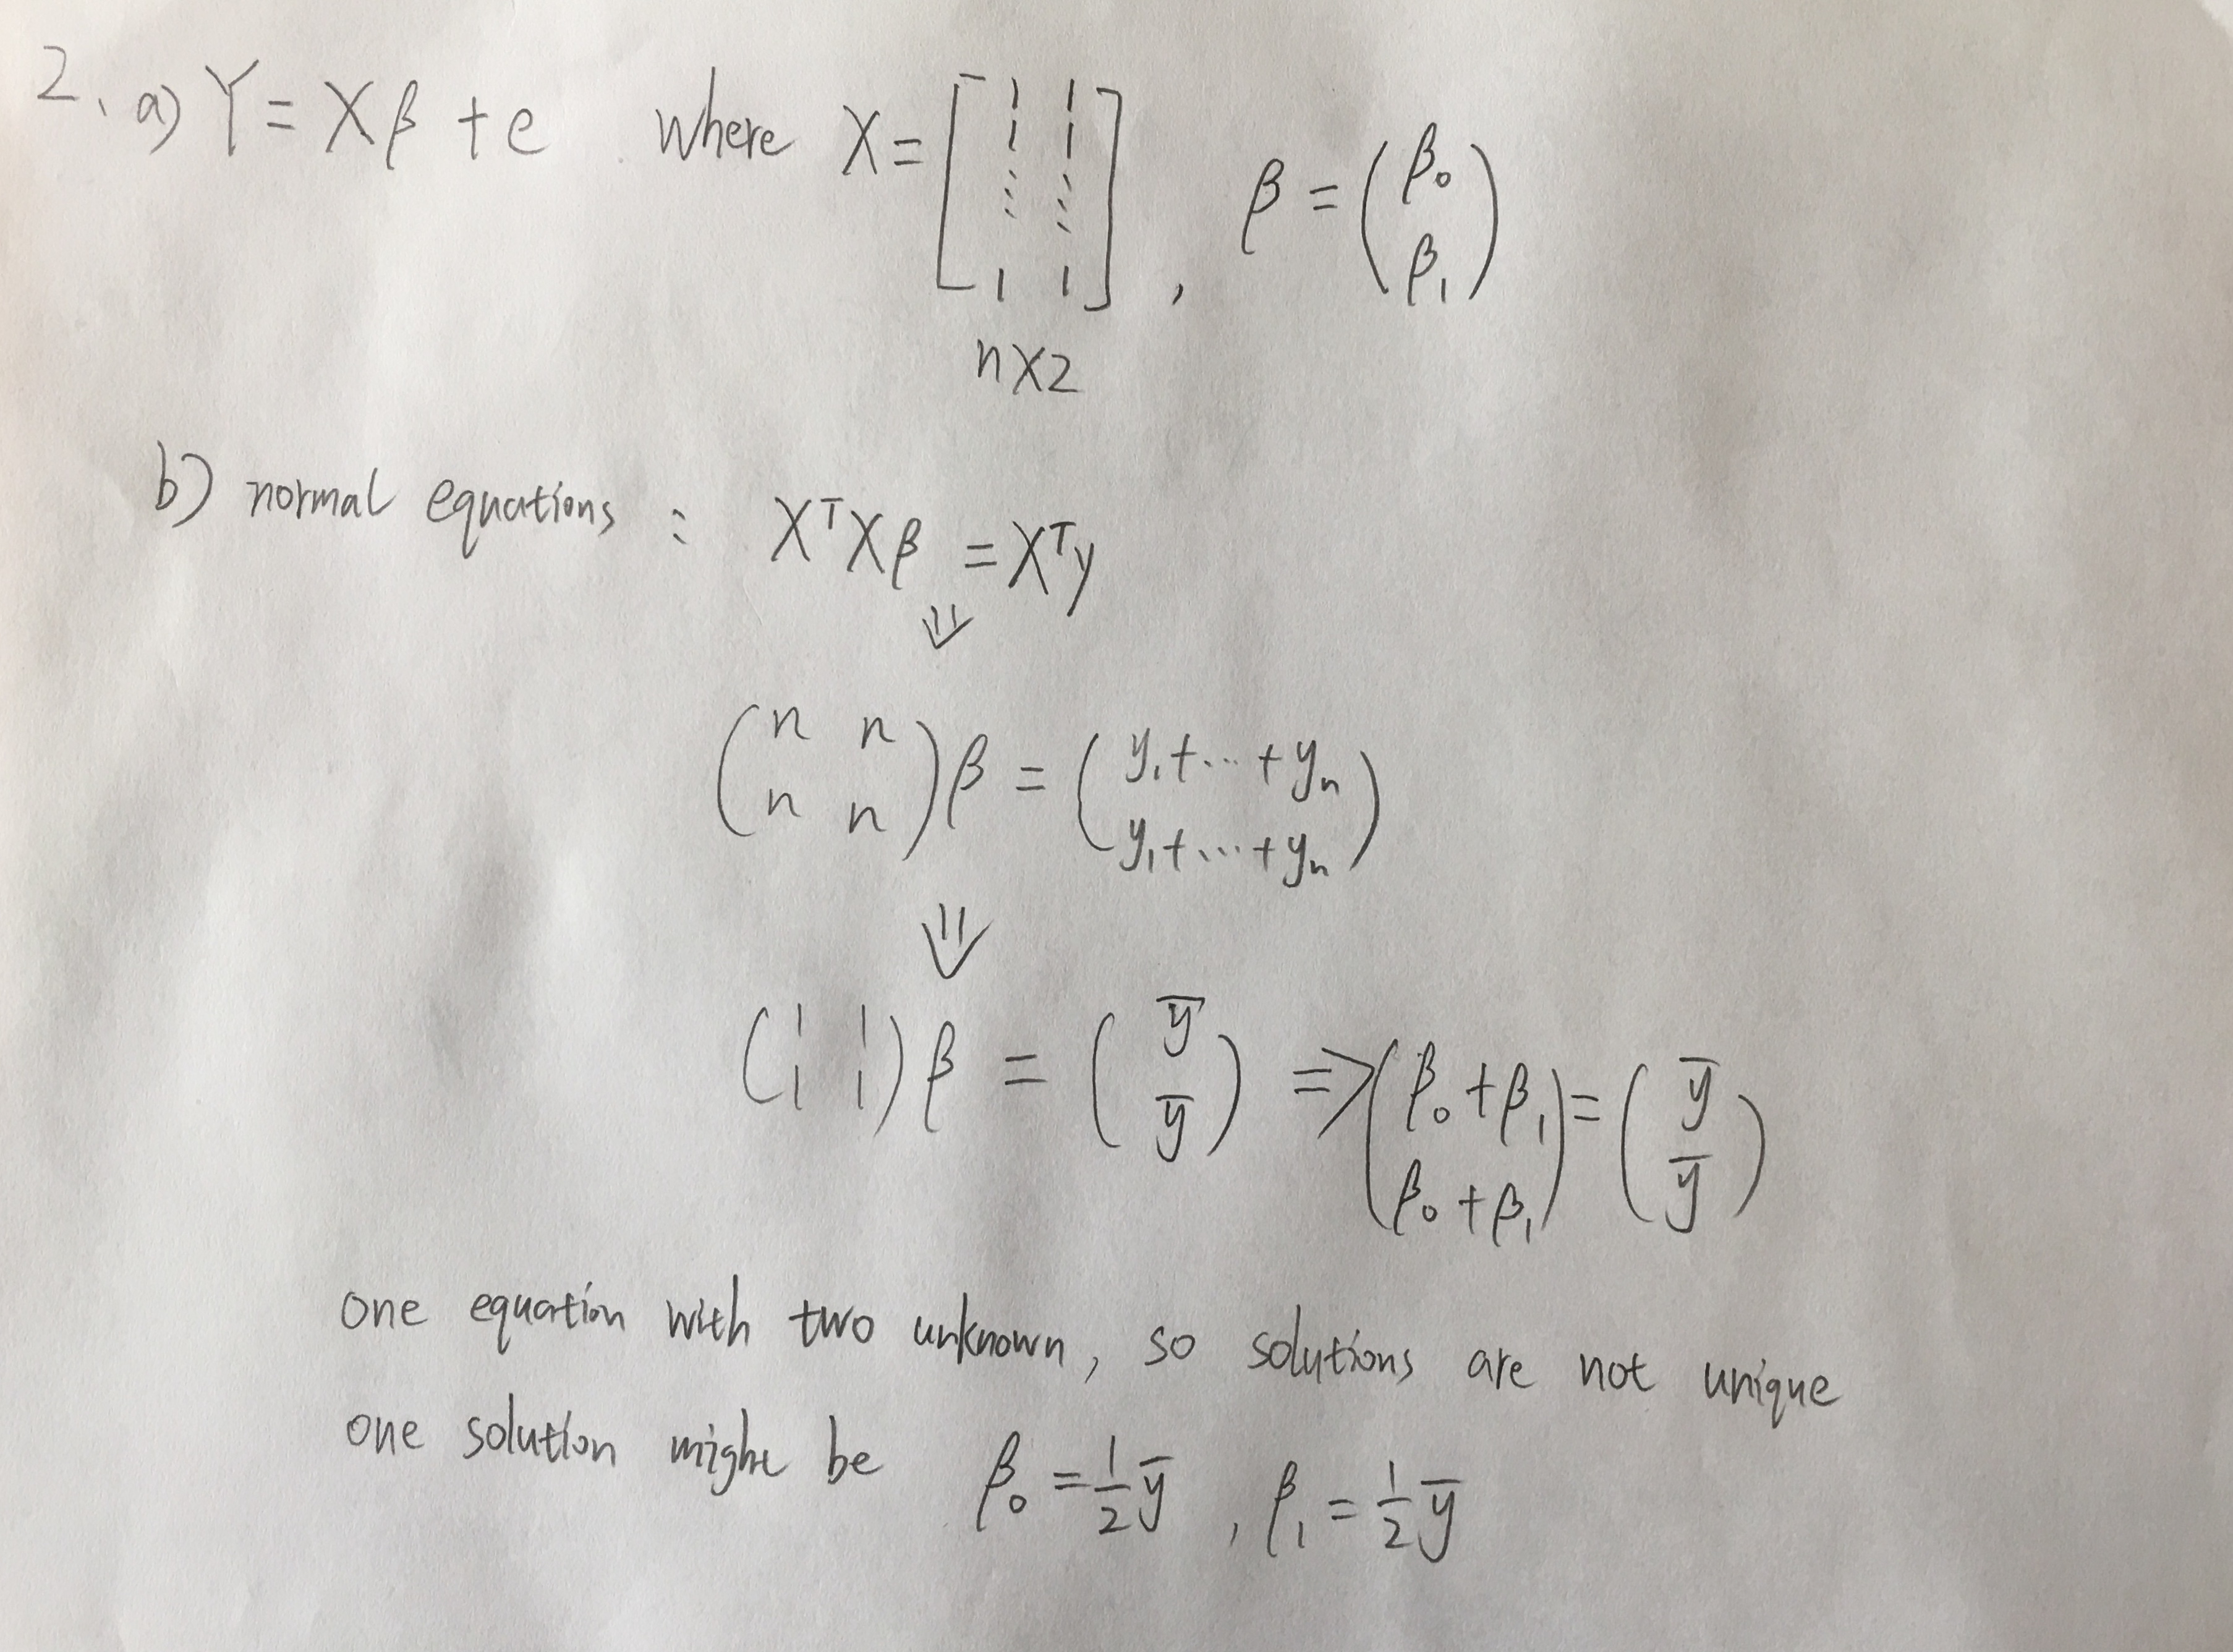 2. a) Y = Xβ + e where X = [1 1; 1 1; ⋮ ⋮; 1 1], β = (β₀; β₁)
n×2
b) normal equations : XᵀXβ = Xᵀy
⇓
(n n; n n)β = (y₁+...+yₙ; y₁+...+yₙ)
⇓
(1 1; 1 1)β = (ȳ; ȳ) ⇒ (β₀+β₁; β₀+β₁) = (ȳ; ȳ)
one equation with two unknown, so solutions are not unique
one solution might be β₀ = ½ȳ , β₁ = ½ȳ